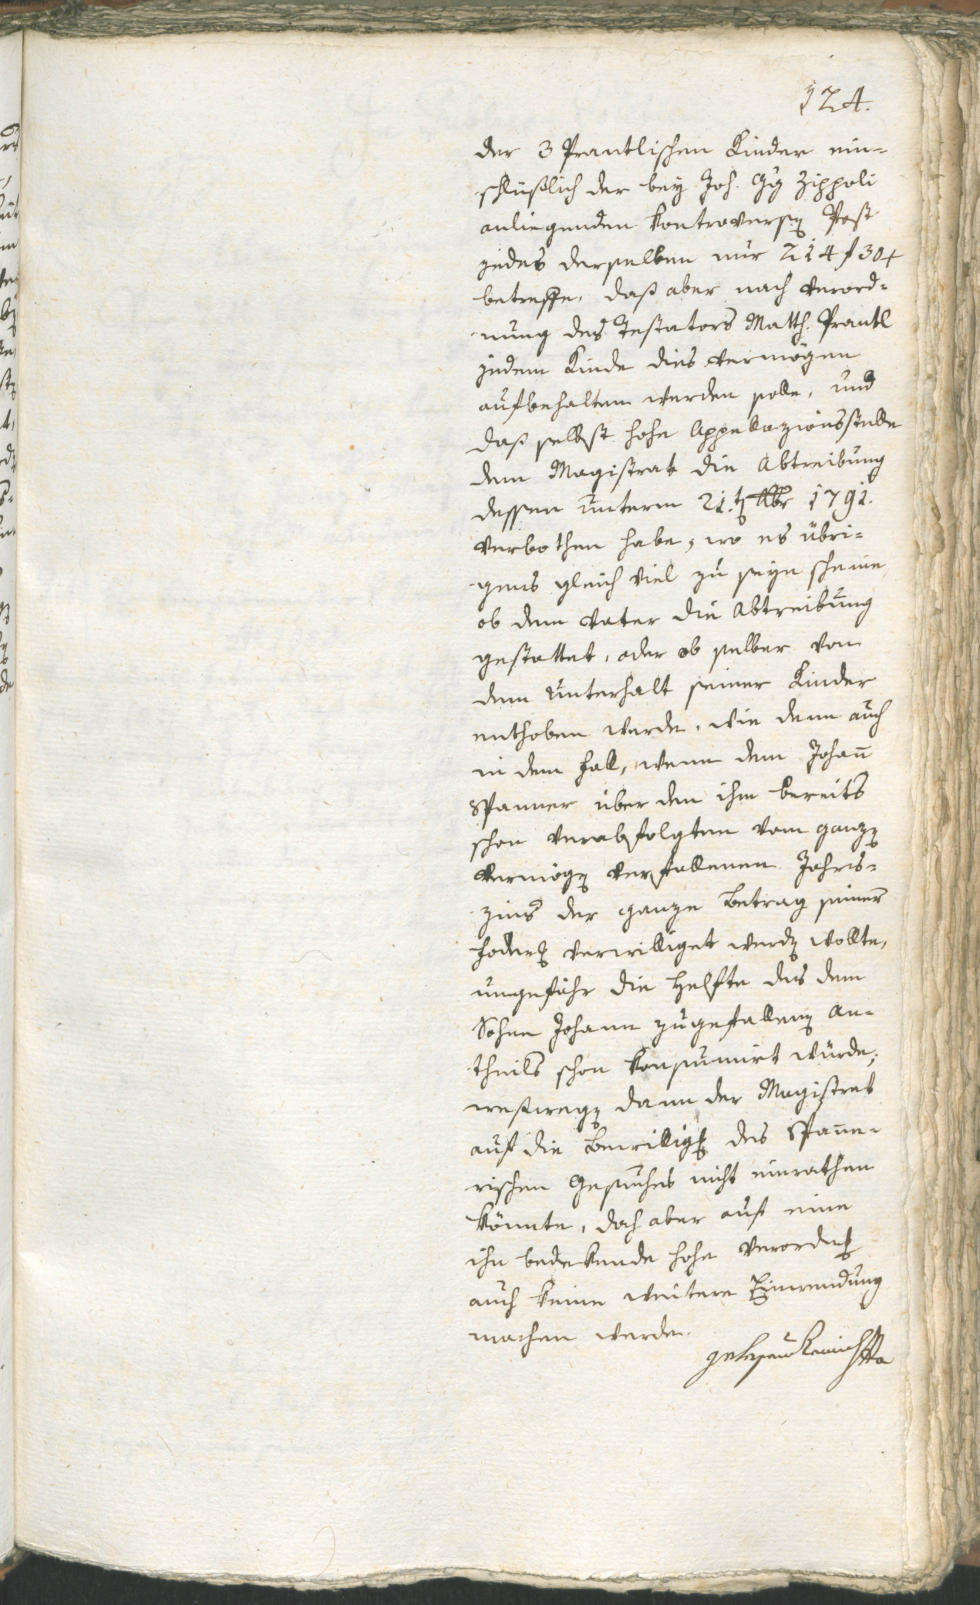 124.
der 3 Prantlischen Kinder ein-
schlüßlich der bey Joh. Gg Zippoli
anliegenden kontroversen Post
jedes derselben nur 214 f 30 x
betreffe, daß aber nach Verord-
nung des Testators Matth. Prantl
jedem Kinde dies Vermögen
aufbehalten werden solle, und
daß selbst hohe Appellazionsstelle
dem Magistrat die Abtreibung
dessen unterm 21.ten 1791.
verbothen habe, wo es übri-
gens gleich viel zu seyn scheine
ob dem Vater die Abtreibung
gestattet, oder ob selber von
dem Unterhalt seiner Kinder
enthoben werde, wie denn auch
in dem Fall, wenn dem Johann
Spanner über den ihm bereits
schon verabfolgten vom ganzen
Vermögen verfallenen Jahrs-
zins der ganze Betrag seiner
Foderung verwilliget werden wollte,
ungefähr die Helfte des dem
Sohne Johann zugefallenen An-
theils schon konsumirt würde;
weßwegen dann der Magistrat
auf die Bewilligung des Spanne-
rischen Gesuches nicht einrathen
könnte, doch aber auf eine
ihn bedekende hohe Verordnung
auch keine weitere Einwendung
machen werde.